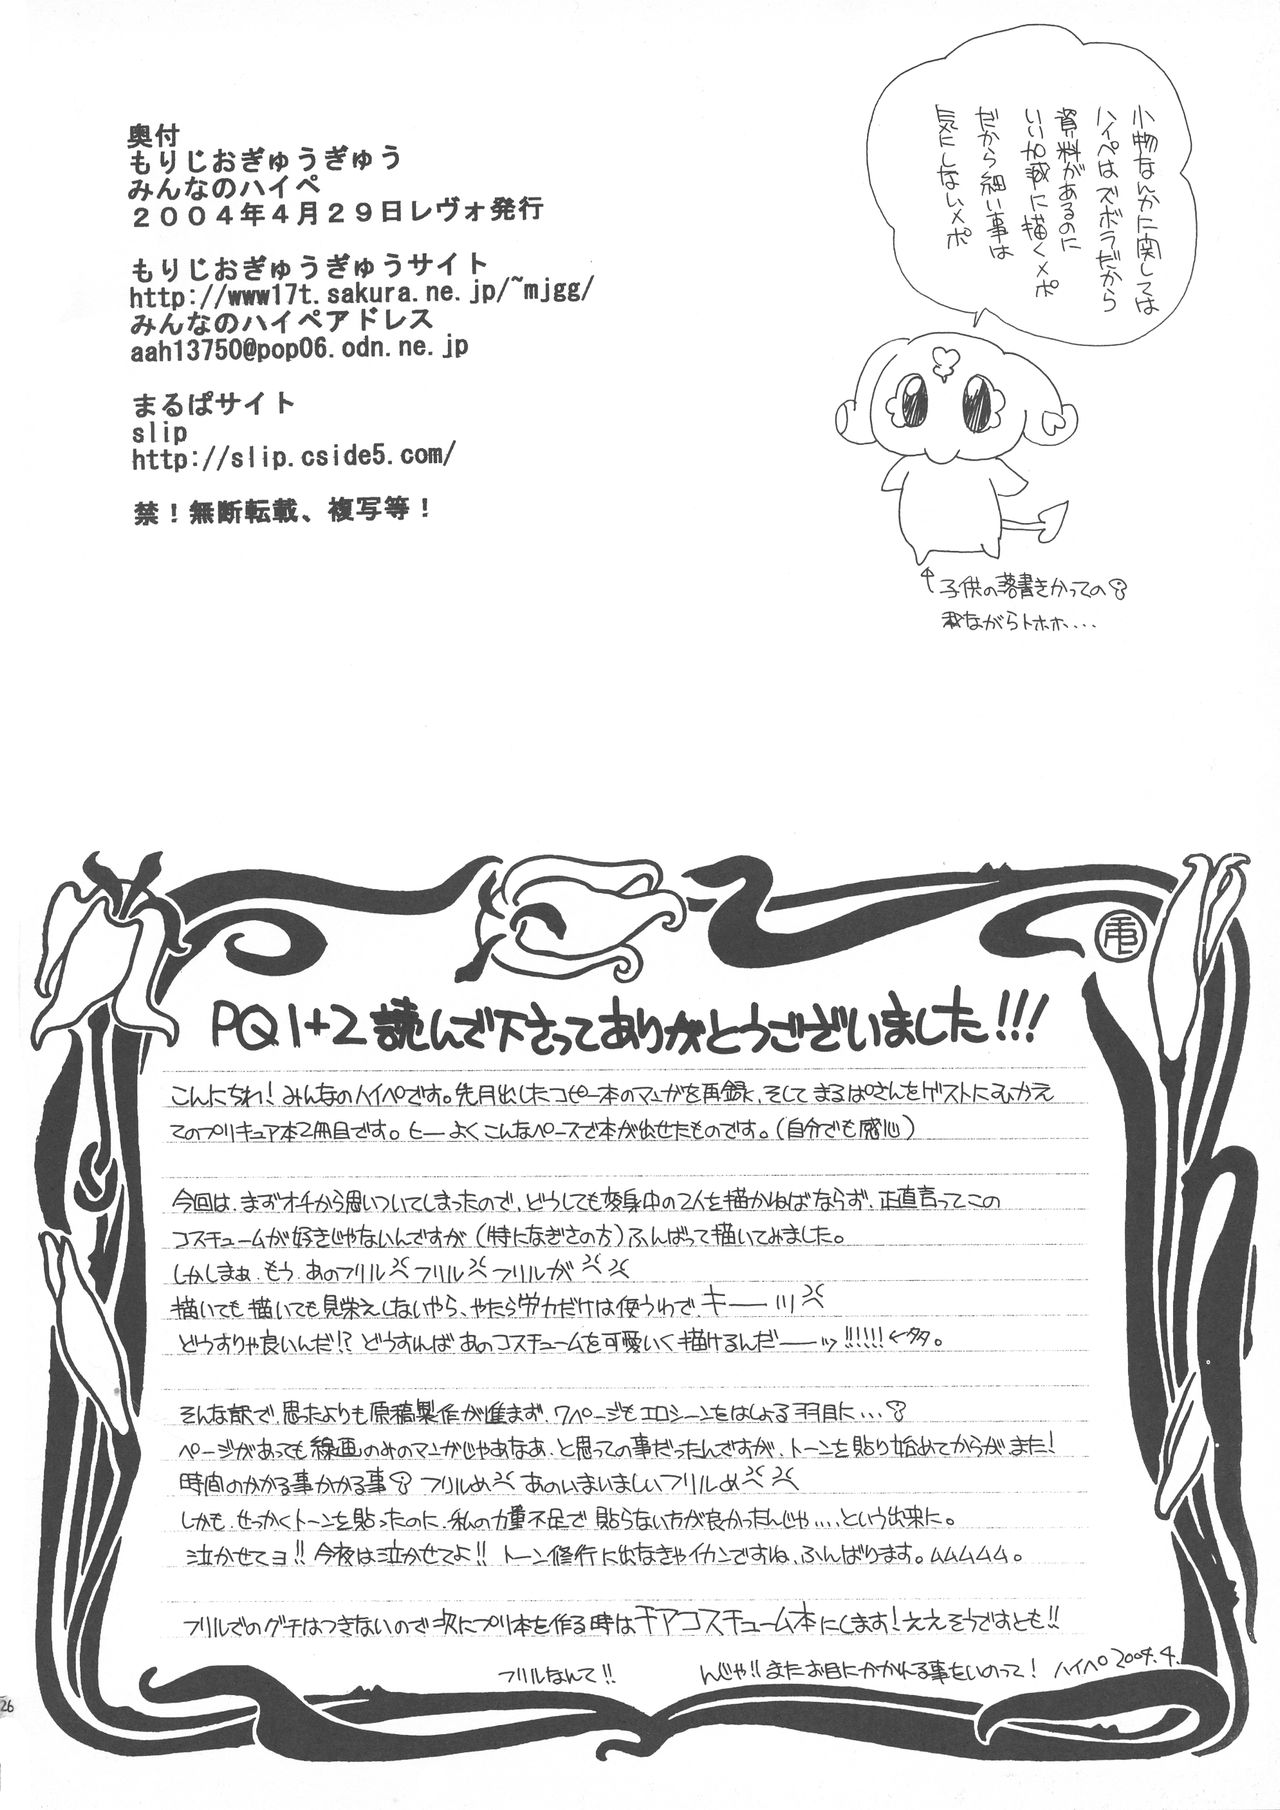 奥付
もりじおぎゅうぎゅう
みんなのハイペ
２００４年４月２９日レヴォ発行
もりじおぎゅうぎゅうサイト
http://www17t.sakura.ne.jp/~mjgg/
みんなのハイペアドレス
aah13750@pop06.odn.ne.jp
まるぱサイト
slip
http://slip.cside5.com/
禁！無断転載、複写等！
小物なんかに関しては
ハイペはズボラだから
資料があるのに
いい加減に描くメポ
だから細い事は
気にしないメポ
子供の落書きかっての
我ながらトホホ...
PQ1+2読んで下さってありがとうございました!!!
こんにちわ!みんなのハイペです。先月出したコピー本のマンガを再録、そしてまるぱさんをゲストにむかえ
てのプリキュア本2冊目です。ヒーよくこんなペースで本が出せたものです。(自分でも感心)
今回は、まずオチから思いついてしまったので、どうしても変身中の2人を描かねばならず、正直言ってこの
コスチュームが好きじゃないんですが(特になぎさの方)ふんばって描いてみました。
しかしまぁ、もう、あのフリルフリルフリルが
描いても描いても見栄えしないやら、やたら労力だけは使うわで、キーーッ
どうすりゃ良いんだ!?どうすればあのコスチュームを可愛いく描けるんだーーッ!!!!!!←多。
そんな訳で、思ったよりも原稿製作が進まず、7ページもエロシーンをはしょる羽目に...
ページがあっても線画のみのマンガじゃあなあ、と思っての事だったんですが、トーンを貼り始めてからがまた!
時間のかかる事かかる事 フリルめ あのいまいましいフリルめ
しかも、せっかくトーンを貼ったのに、私の力量不足で貼らない方が良かったんじゃ....という出来に。
泣かせてヨ!!今夜は泣かせてよ!!トーン修行に出なきゃイカンですね、ふんばります。ムムムムム。
フリルでのグチはつきないので次にプリ本を作る時はチアコスチューム本にします!ええそうですとも!!
フリルなんて!!
んじゃ!!またお目にかかれる事をいのって! ハイペ 2004.4.
26